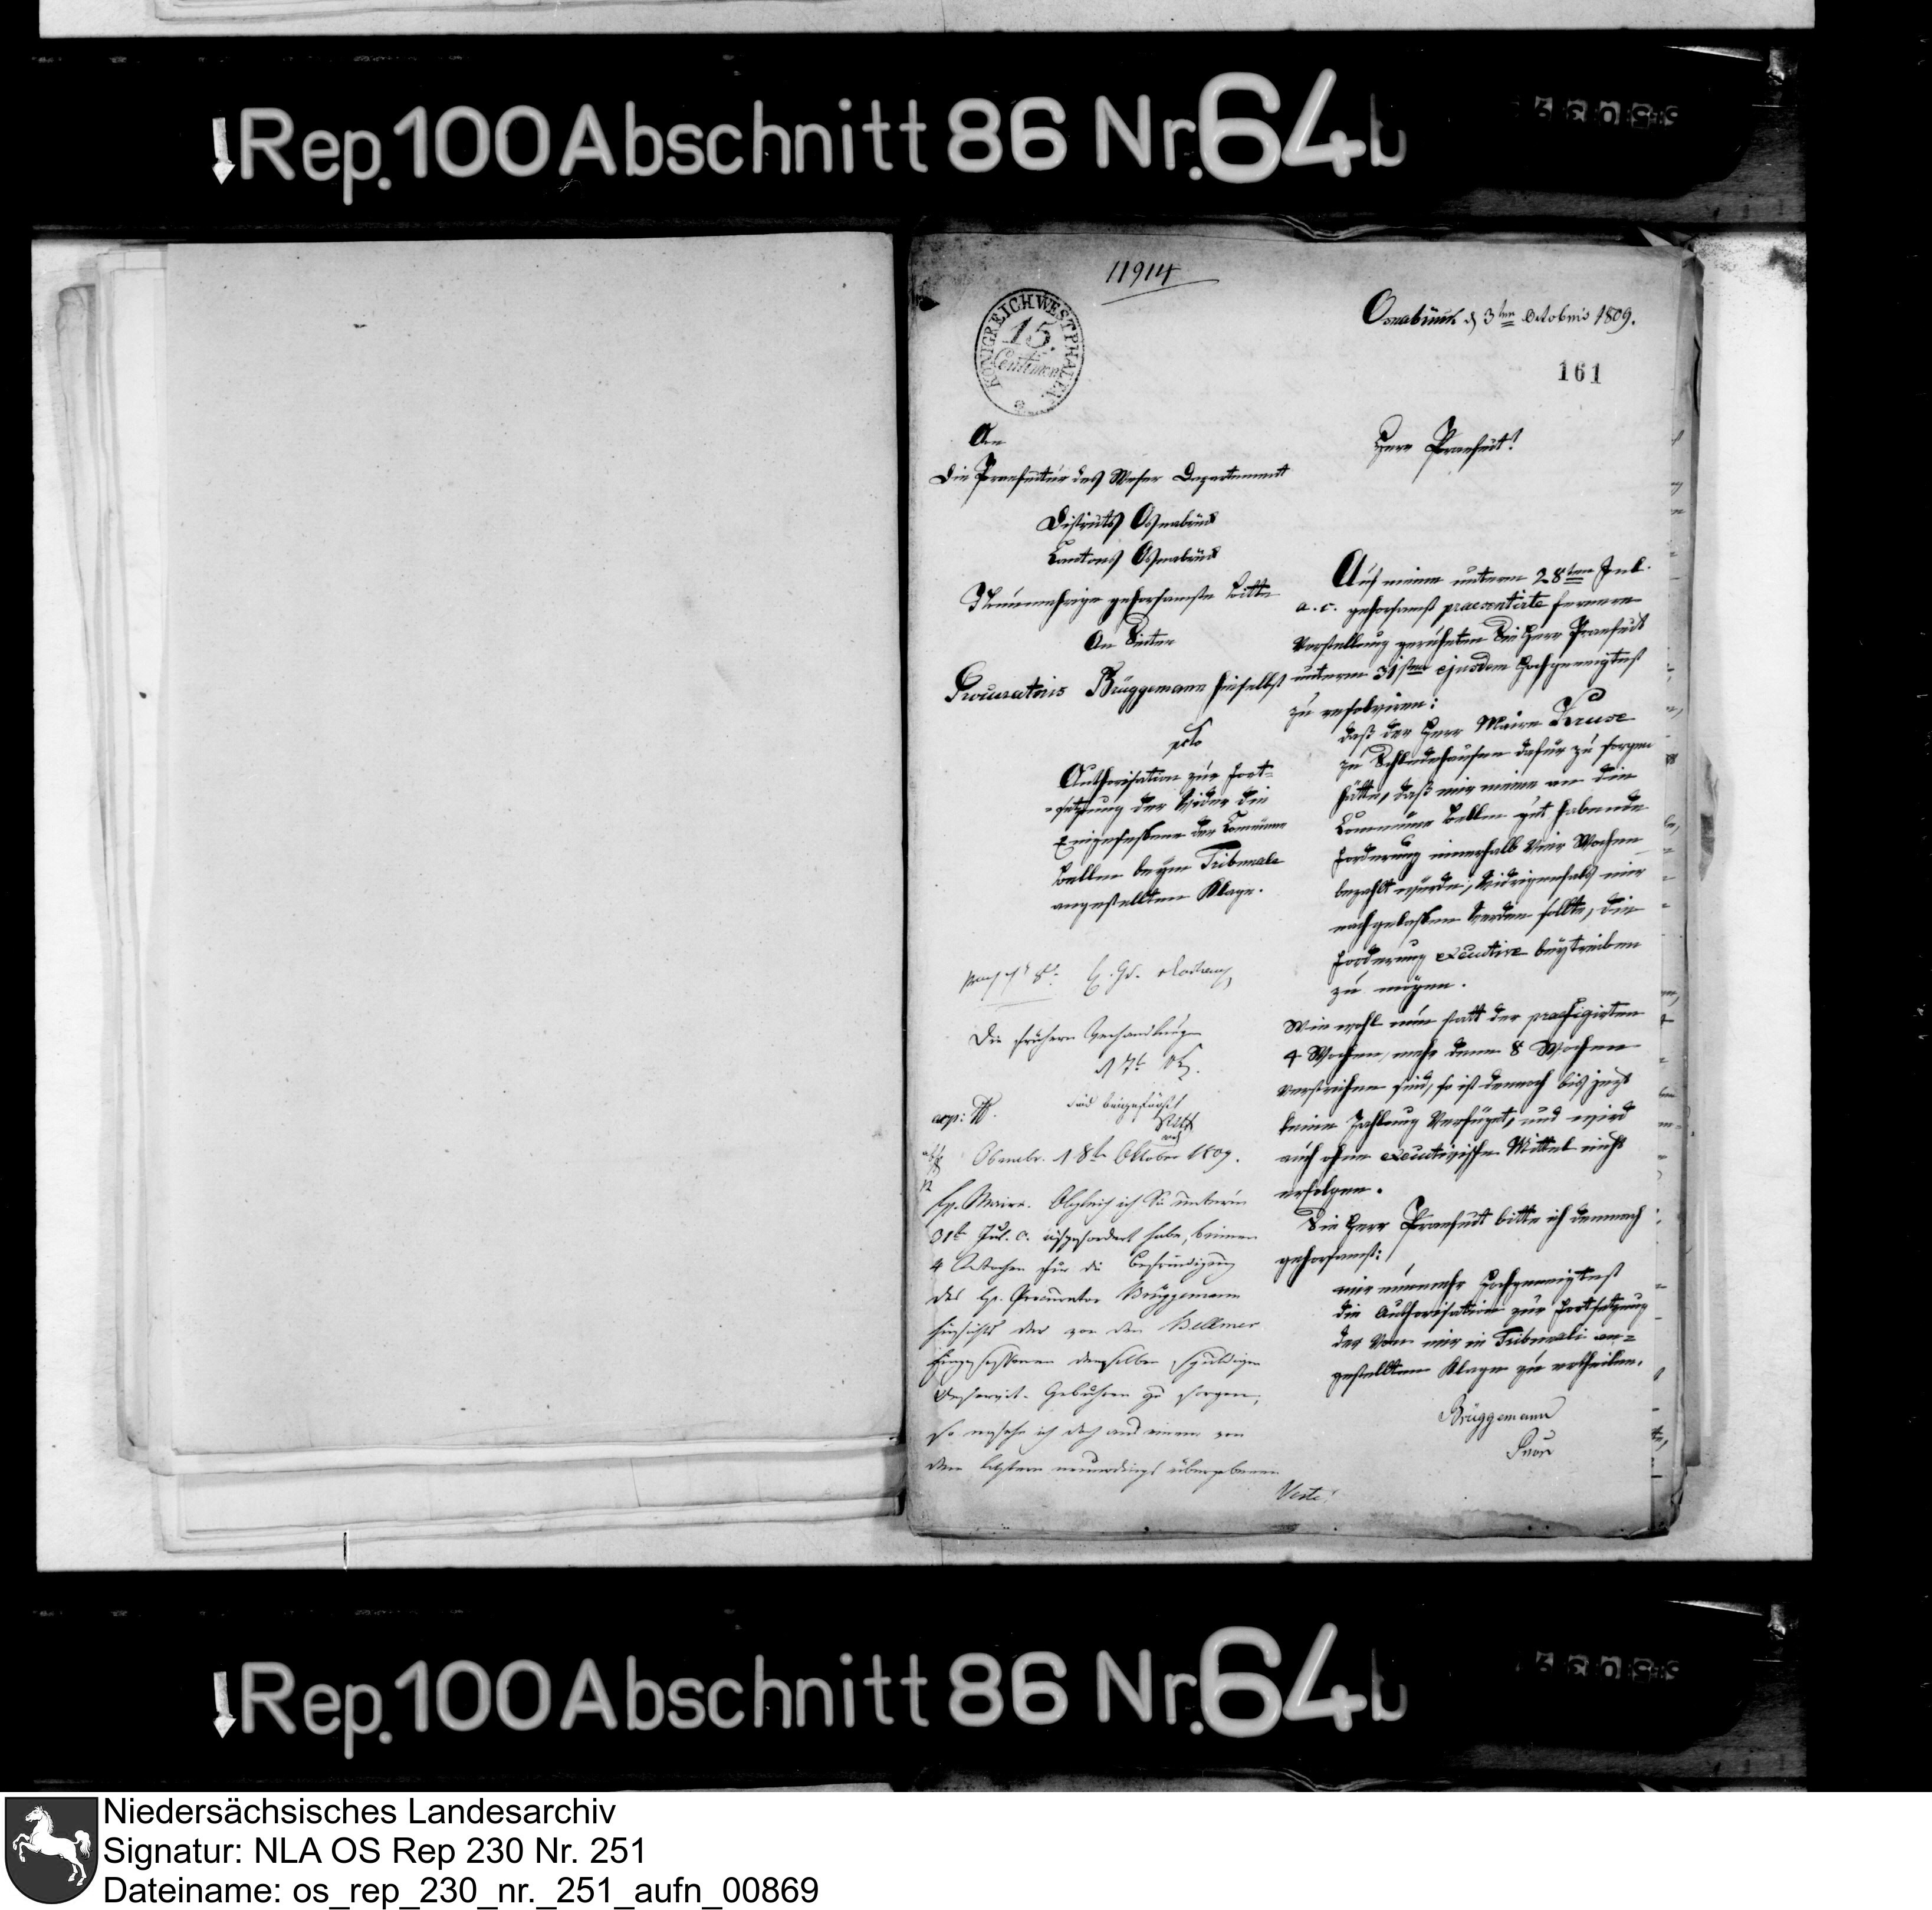 Rep. 100 Abschnitt 86 Nr. 64b
11914
KÖNIGREICH WESTPHALEN
15.
Centimen
Osnabrück d 3ten Octobris 1809.
161
An
die Praefectur des Weser Departement
Districts Osnabrück
Cantons Osnabrück
Nunmehrige gehorsamste Bitte
An Seiten
Procuratoris Brüggemann hieselbst
pcto
Authorisation zur Fort=
=setzung der wider die
Eingesessene der Commune
Bellm beym Tribunale
angestellten Klage.
Herr Praefect!
Auf meine unterm 28ten Jul.
a. c. gehorsamst praesentirte fernere
Vorstellung geruheten Sie Herr Praefect
unterm 31sten ejusdem hochgeneigtest
zu resolviren:
daß der Herr Maire Kruse
zu Schledehausen dafür zu sorgen
hätte, daß mir meine an die
Commune Bellm gut habende
Forderung innerhalb vier Wochen
bezahlt würde; widrigenfals mir
nachgelassen werden sollte, die
Forderung executive beytreiben
zu mögen.
Wie wohl nun statt der praefigirten
4 Wochen, mehr denn 8 Wochen
verstrichen sind, so ist dennoch bis jezt
keine Zahlung verfüget, und wird
auch ohne executivische Mittel nicht
erfolgen.
Sie Herr Praefect bitte ich demnach
gehorsamst:
mir nunmehr hochgeneigtest
die Authorisation zur Fortsetzung
der von mir in Tribunali an=
gestellten Klage zu ertheilen.
Brüggemann
Die frühern Verhandlungen
sind beigefügt
Osnabr. d 8t Oktober 1809.
Hr. Maire. Obgleich ich Sie unterm
31t Jul. c. aufgefordert habe, binnen
4 Wochen für die Befriedigung
des Hr. Procurator Brüggemann
hinsichts der von den Bellmer
Eingesessenen demselben schuldigen
Deservit-Gebühren zu sorgen,
so ersehe ich doch aus einem von
dem letztern neuerdings übergebenen
Rep. 100 Abschnitt 86 Nr. 64b
Niedersächsisches Landesarchiv
Signatur: NLA OS Rep 230 Nr. 251
Dateiname: os_rep_230_nr._251_aufn_00869